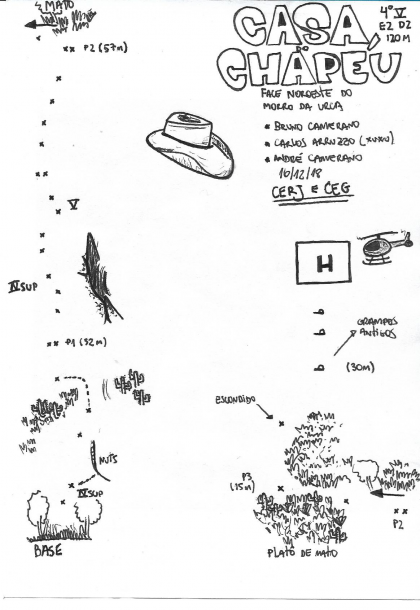 CASA
DO
CHAPEU
4º V
E2 D2
120M
FACE NOROESTE DO
MORRO DA URCA
BRUNO CAMERANO
CARLOS ARRUZZO (XUXU)
ANDRÉ CAMERANO
16/12/18
CERJ E CEG
MATO
P2 (57m)
V
IVSUP
P1 (32m)
NUTS
IVSUP
BASE
H
GRAMPOS
ANTIGOS
(30m)
ESCONDIDO
P3
(15m)
P2
PLATÔ DE MATO